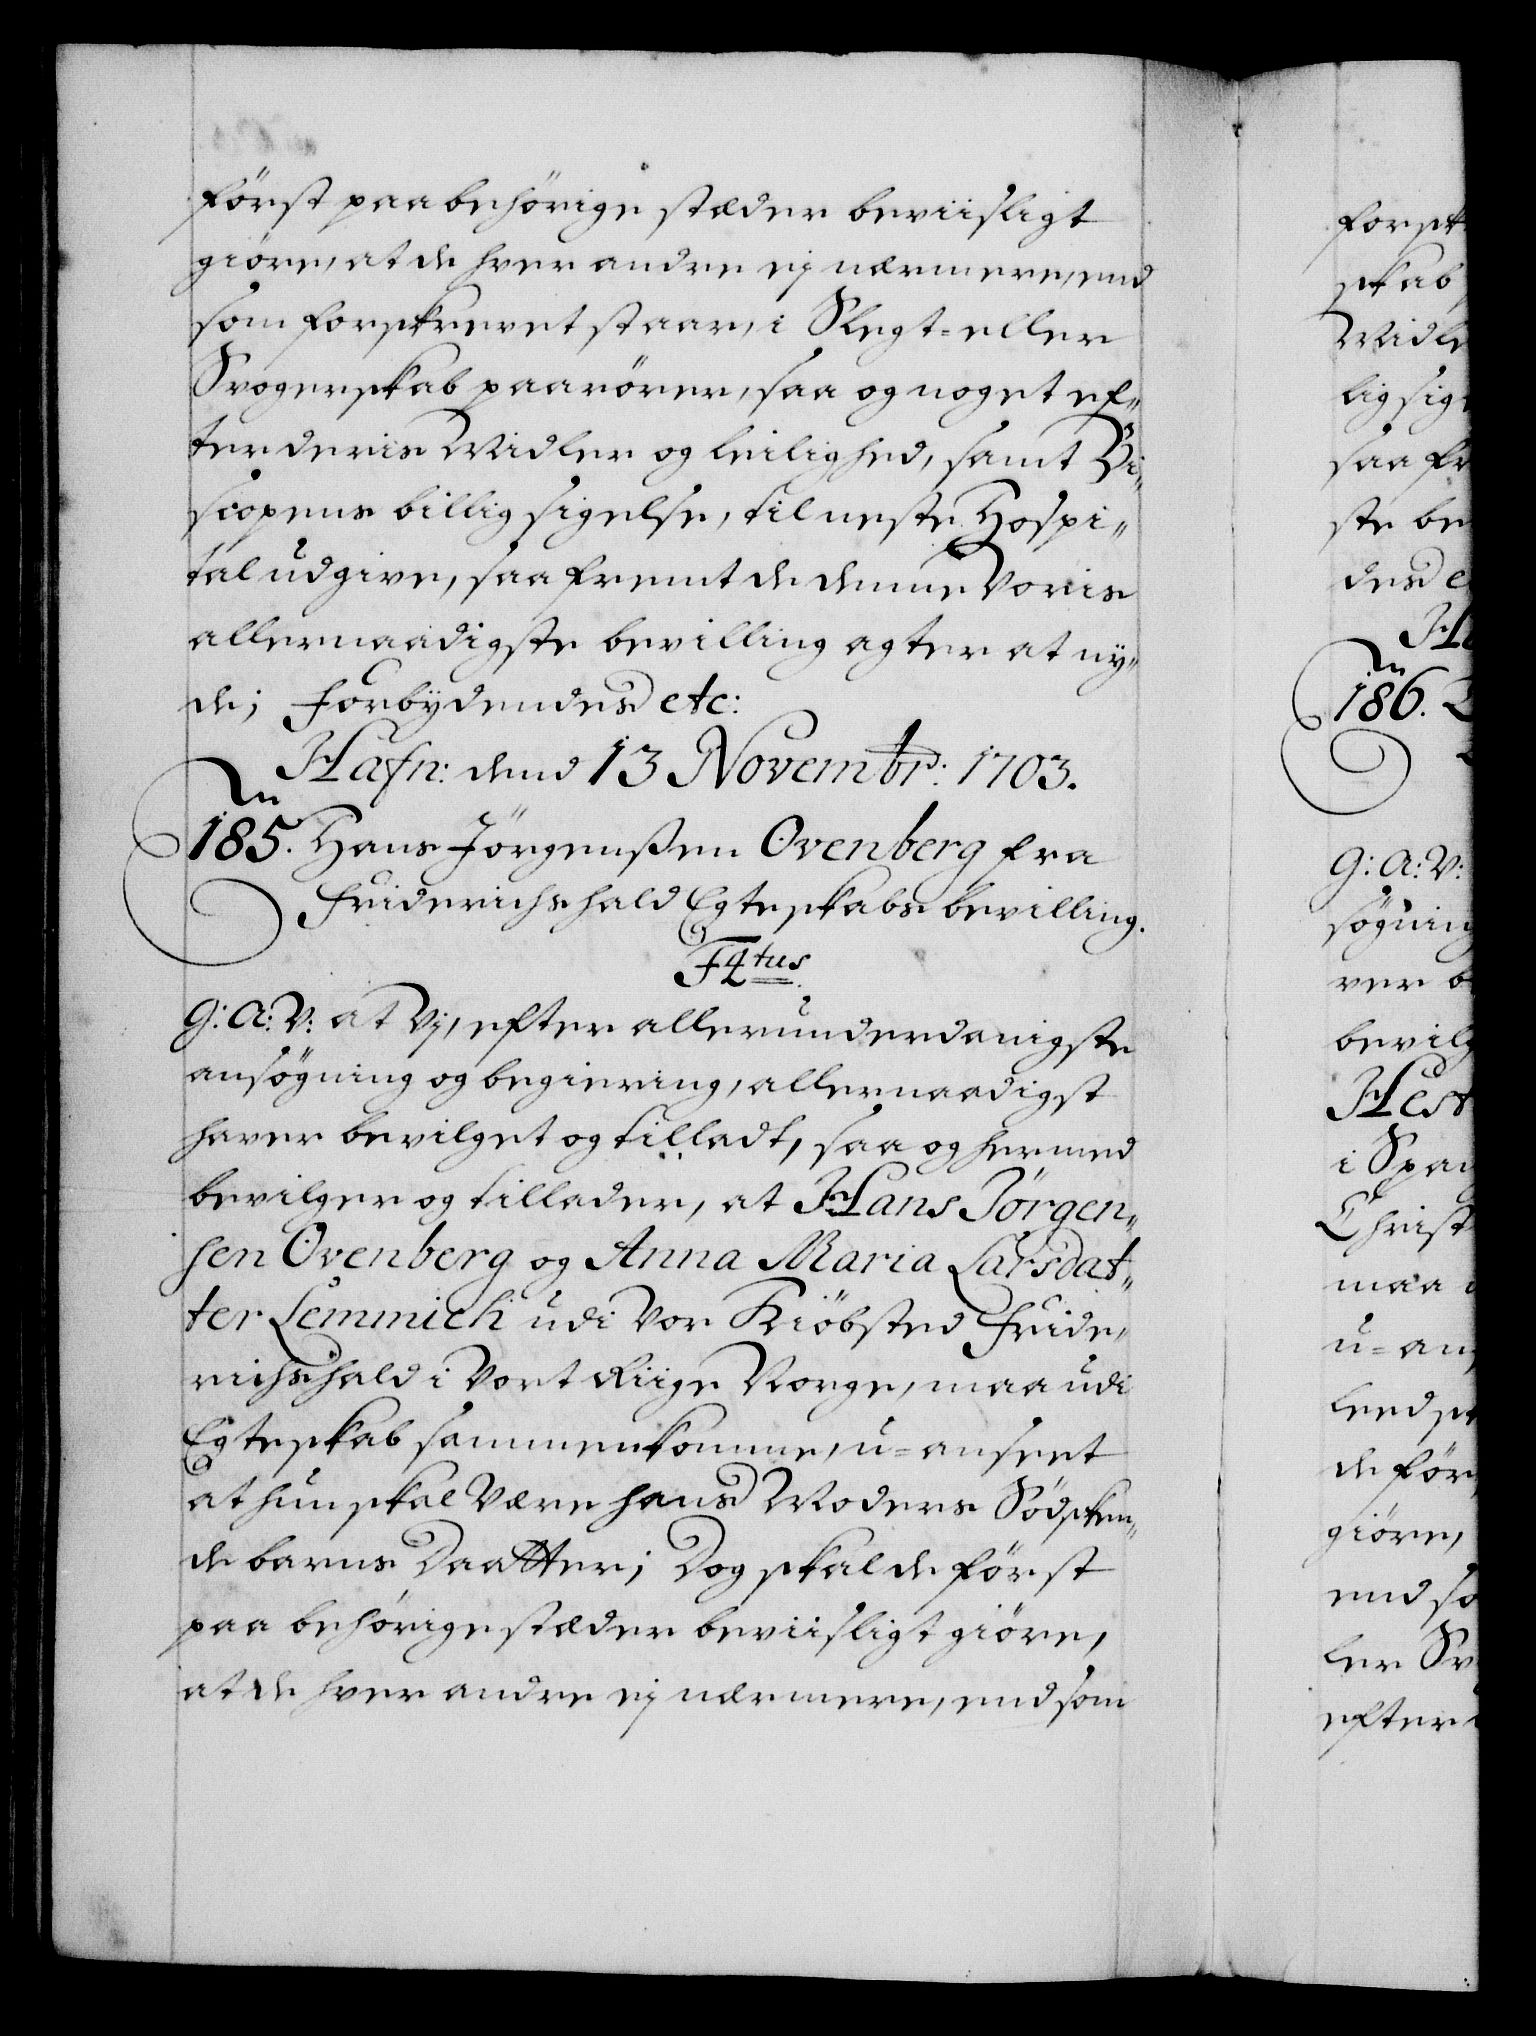 först paa behörige stæder beviisligt
giöre, at de hver andre ej nærmere, end
som forskrevet staar, i Slegt- eller
Svogerskab paarörer, saa og noget ef-
ter deris Midler og leilighed, samt Bi-
scopens billig sigelse, til neste Hospi-
tal udgive, saa fremt de denne Voris
allernaadigste bevilling agter at ny-
de; Forbydendes etc:
Hafn: dend 13 Novembr: 1703.
185. Hans Jörgenßen Ovenberg fra
Friderichshald Egteskabs bevilling.
F4tus
G: A: V: at Vj, efter allerunderdanigste
ansögning og begiering, allernaadigst
haver bevilget og tilladt, saa og hermed
bevilger og tillader, at Hans Jörgen-
sen Ovenberg og Anna Maria Larsdat-
ter Lemmich udi Vor Kiöbsted Fride-
richshald i Vort Riige Norge, maa udi
Egteskab sammenkomme, u-anseet
at hun skal Være hans Moders Södsken-
de barns Daatter; Dog skal de först
paa behörige stæder beviisligt giöre,
at de hver andre ej nærmere, end som
forsk
skab
Midle
lig sige
saa fr
ste be
des e
186.
G: A: V:
sögning
ver b
bevilg
Hest
i Span
Christ
maa
u-an
leedsk
de för
giöre,
end so
ler Sv
efter